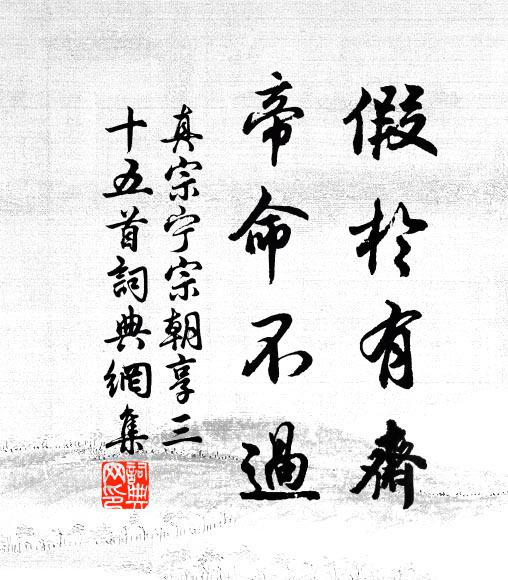 假於有齋
帝命不過
真宗宁宗朝享三
十五首詞典網集
詞典网印